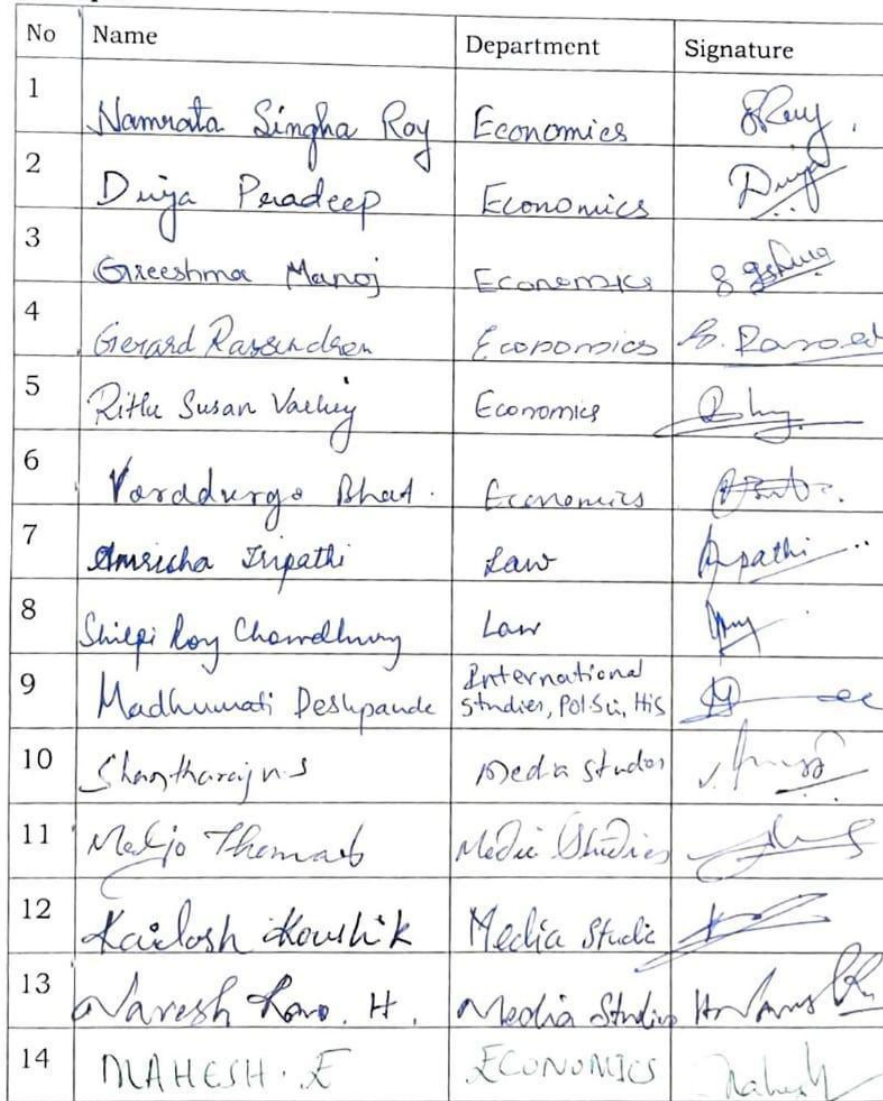 No Name Department Signature
1 Namrata Singha Roy Economics SRoy.
2 Diya Peradeep Economics Diya
3 Greeshma Manoj Economics
4 Gerard Rassendren Economics G. Rassed
5 Rithu Susan Varkey Economics
6 Varadurga Bhat. Economics
7 Amricha Tripathi Law Apathi
8 Shilpi Roy Chowdhury Law
9 Madhumati Deshpande International
Studies, Pol.Sci, His
10 Shantharaju S Media Studies
11 Maljo Thomas Media Studies
12 Kailash Koushik Media Studie
13 Naresh Rao. H. Media Studies
14 MAHESH. E ECONOMICS Mahesh